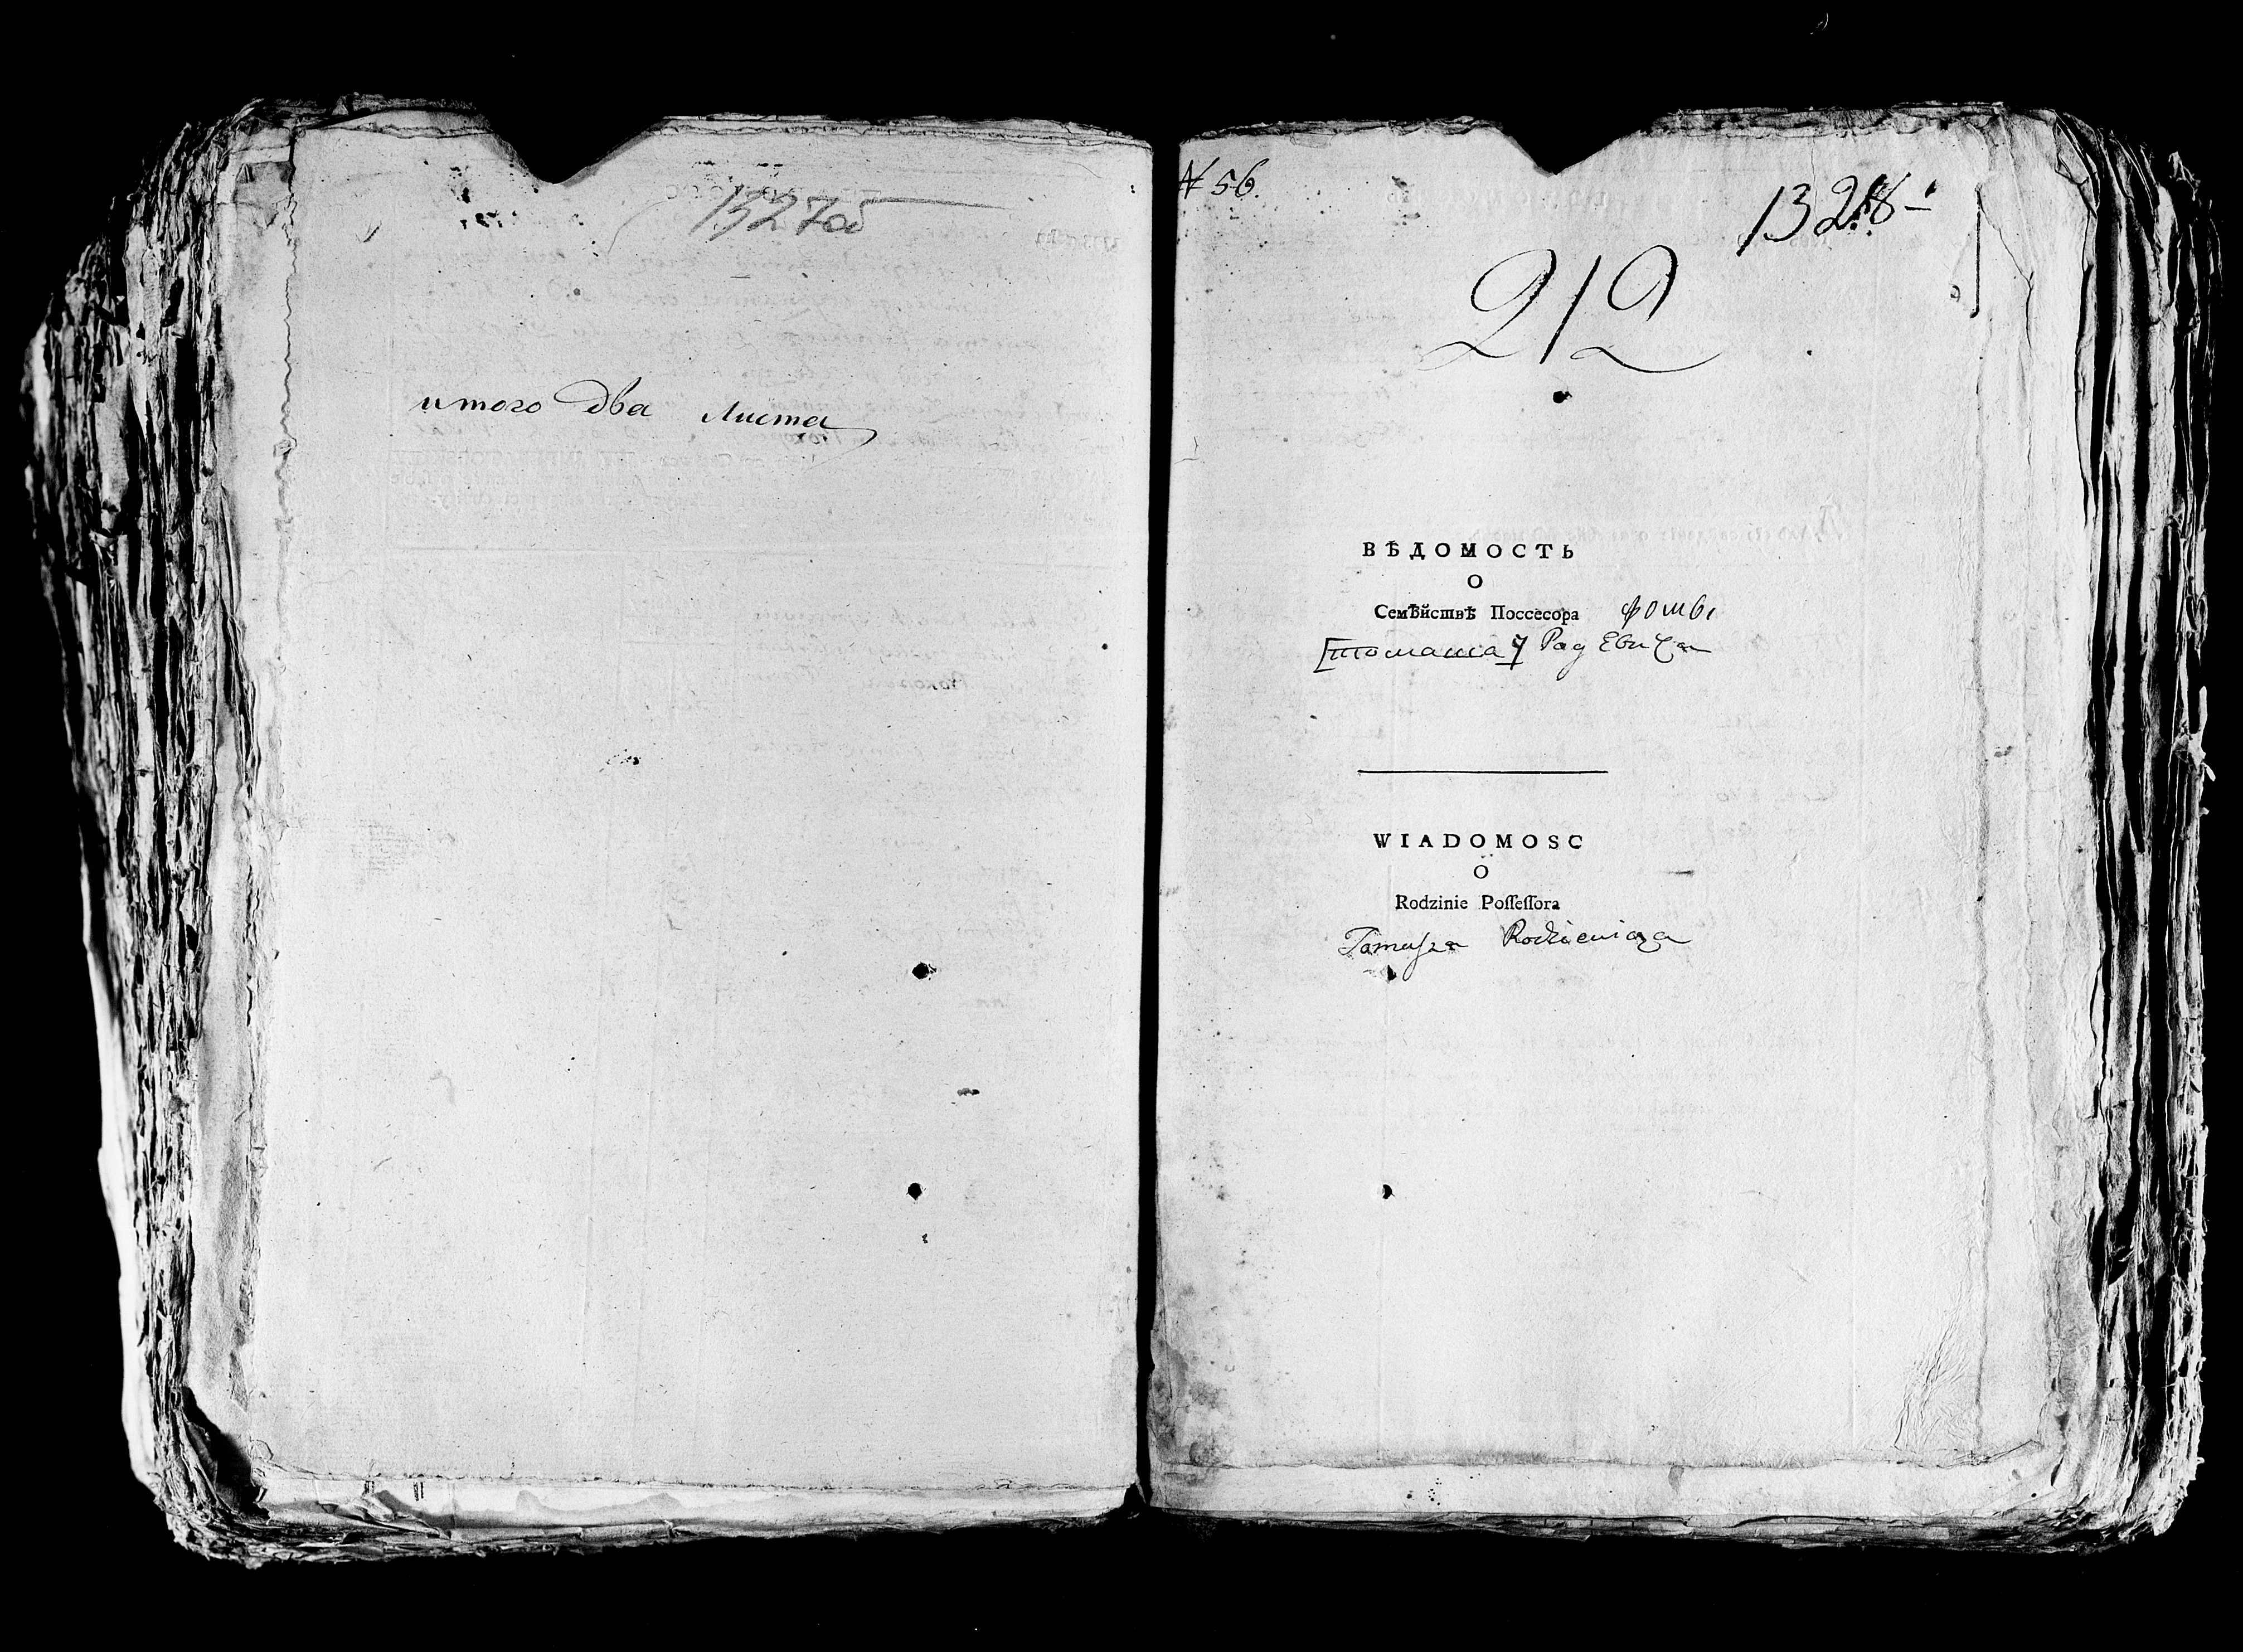 1327об
итого два листа
№ 56.
1328
212
ВѢДОМОСТЬ
О
Семѣйствѣ Поссесора Фомы
[томаша] Радзевича
WIADOMOSC
O
Rodzinie Poſſeſſora
Tomaſza Rodziewicza